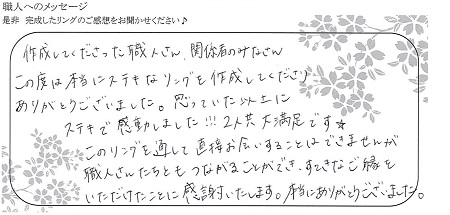 職人へのメッセージ
是非 完成したリングのご感想をお聞かせください♪
作成してくださった職人さん、関係者のみなさん
この度は本当にステキなリングを作成してくださり
ありがとうございました。思っていた以上に
ステキで感動しました!!! 2人共大満足です★
このリングを通して直接お会いすることはできませんが
職人さんたちともつながることができ、すてきなご縁を
いただけたことに感謝いたします。本当にありがとうございました。